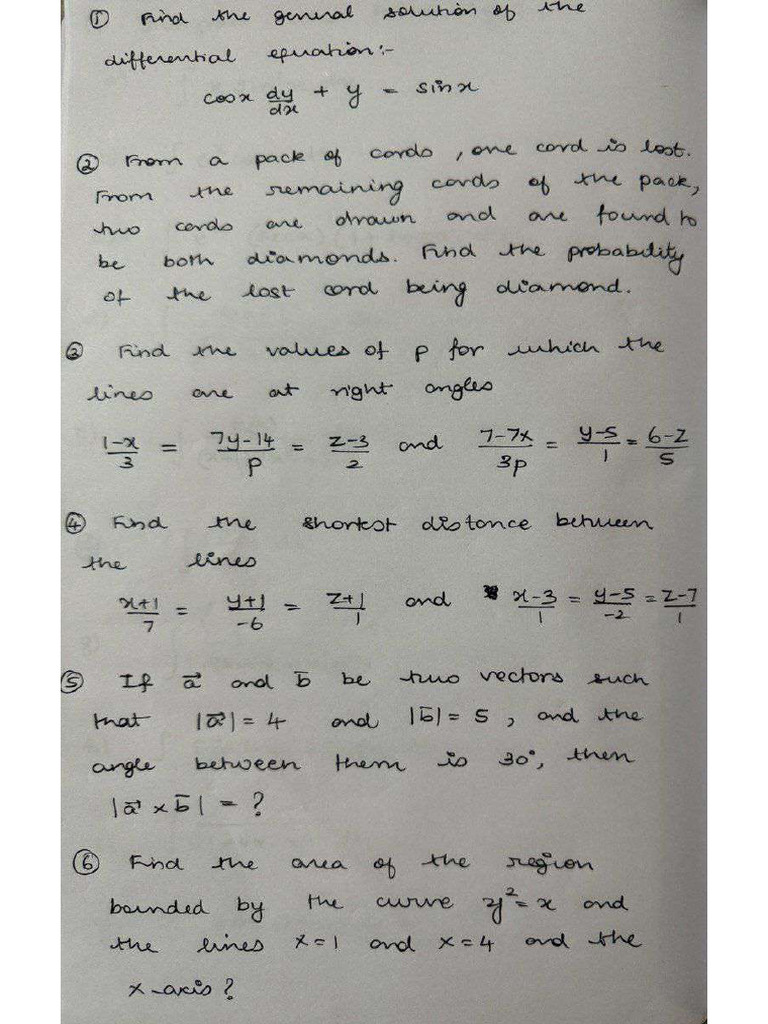 ① Find the general solution of the
differential equation:-
cosx dy/dx + y = sinx
② From a pack of cards, one card is lost.
From the remaining cards of the pack,
two cards are drawn and are found to
be both diamonds. Find the probability
of the lost card being diamond.
③ Find the values of p for which the
lines are at right angles
1-x/3 = 7y-14/p = z-3/2 and 7-7x/3p = y-5/1 = 6-z/5
④ Find the shortest distance between
the lines
x+1/7 = y+1/-6 = z+1/1 and x-3/1 = y-5/-2 = z-7/1
⑤ If a⃗ and b̄ be two vectors such
that |a⃗| = 4 and |b̄| = 5, and the
angle between them is 30°, then
|a⃗ × b̄| = ?
⑥ Find the area of the region
bounded by the curve y² = x and
the lines x=1 and x=4 and the
x-axis?